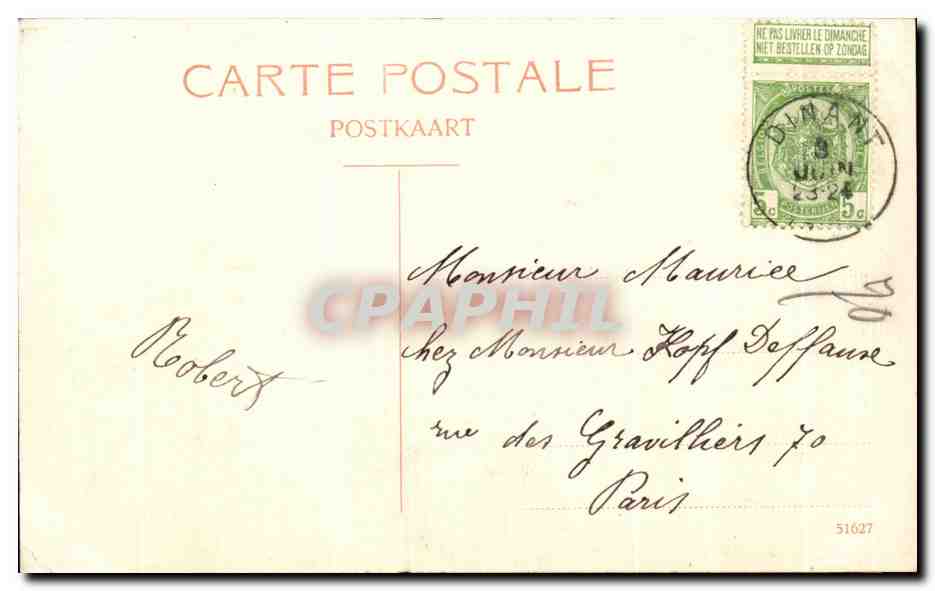 NE PAS LIVRER LE DIMANCHE
NIET BESTELLEN OP ZONDAG
CARTE POSTALE
POSTKAART
POSTES
DINANT
8
JUIN
23-24
POSTERIJEN
5c 5c
Monsieur Maurice
CPAPHIL
Robert
chez Monsieur Kopf Deffause
rue des Gravilliers 70
Paris
51627